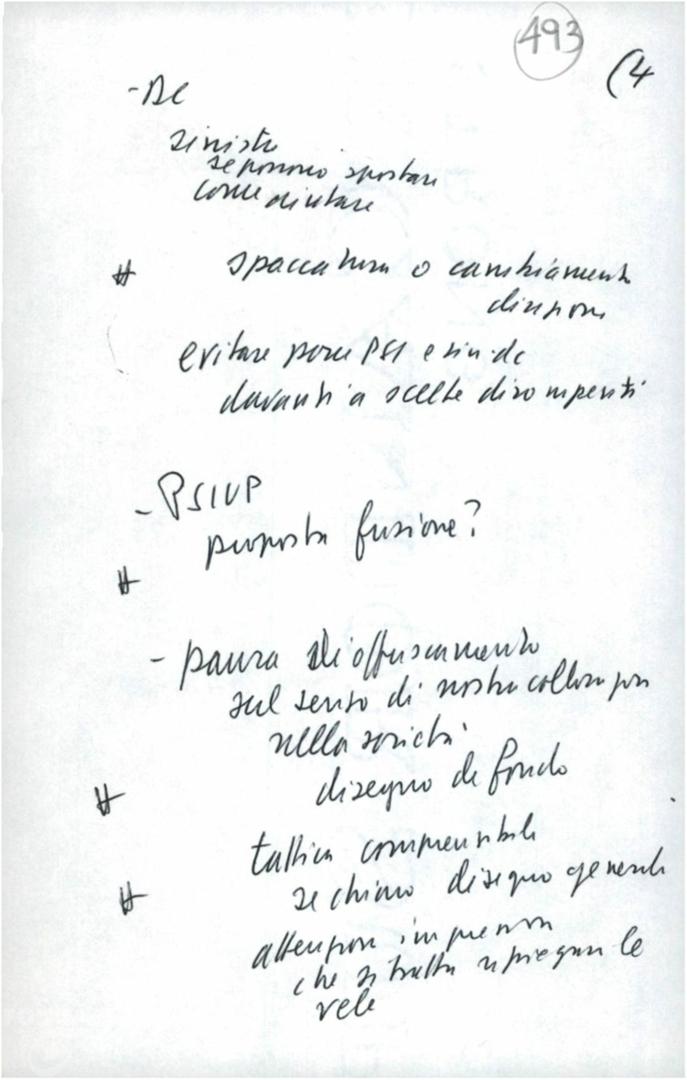 493
(4
- DC
sinistre
se possono spostare
come aiutare
# spaccatura o cambiamento
direzione
evitare porre PSI e sin. dc
davanti a scelte dirompenti
- PSIUP
proposta fusione?
#
- paura di offuscamento
sul senso di nostra collocazione
nella società
disegno di fondo
#
tattica comprensibile
# se chiaro disegno generale
attenzione impressione
che si tratta ripiegare le
vele